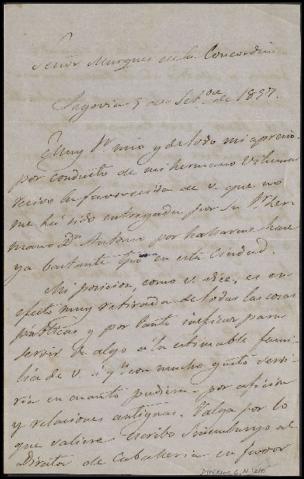 Señor Marques de la Concordia
Segovia 5 de Set.bre de 1857.
Muy Sr mio y de todo mi aprecio
por conducto de mi hermano
recivo la favorecida de v. que no
me ha sido entregada por su Sr Her
mano Dn Antonio por hallarme hace
ya bastante tpo en esta Ciudad.
Mi posicion, como v. dice, es en
efecto muy retirada de todas las cosas
politicas y por tanto ineficaz para
servir de algo a la estimable fami
lia de v. á qn con mucho gusto servi
ria en cuanto pudiera por aficion
y relaciones antiguas. Valga por lo
que valiere escribo sin embargo al
Director de Caballeria en favor